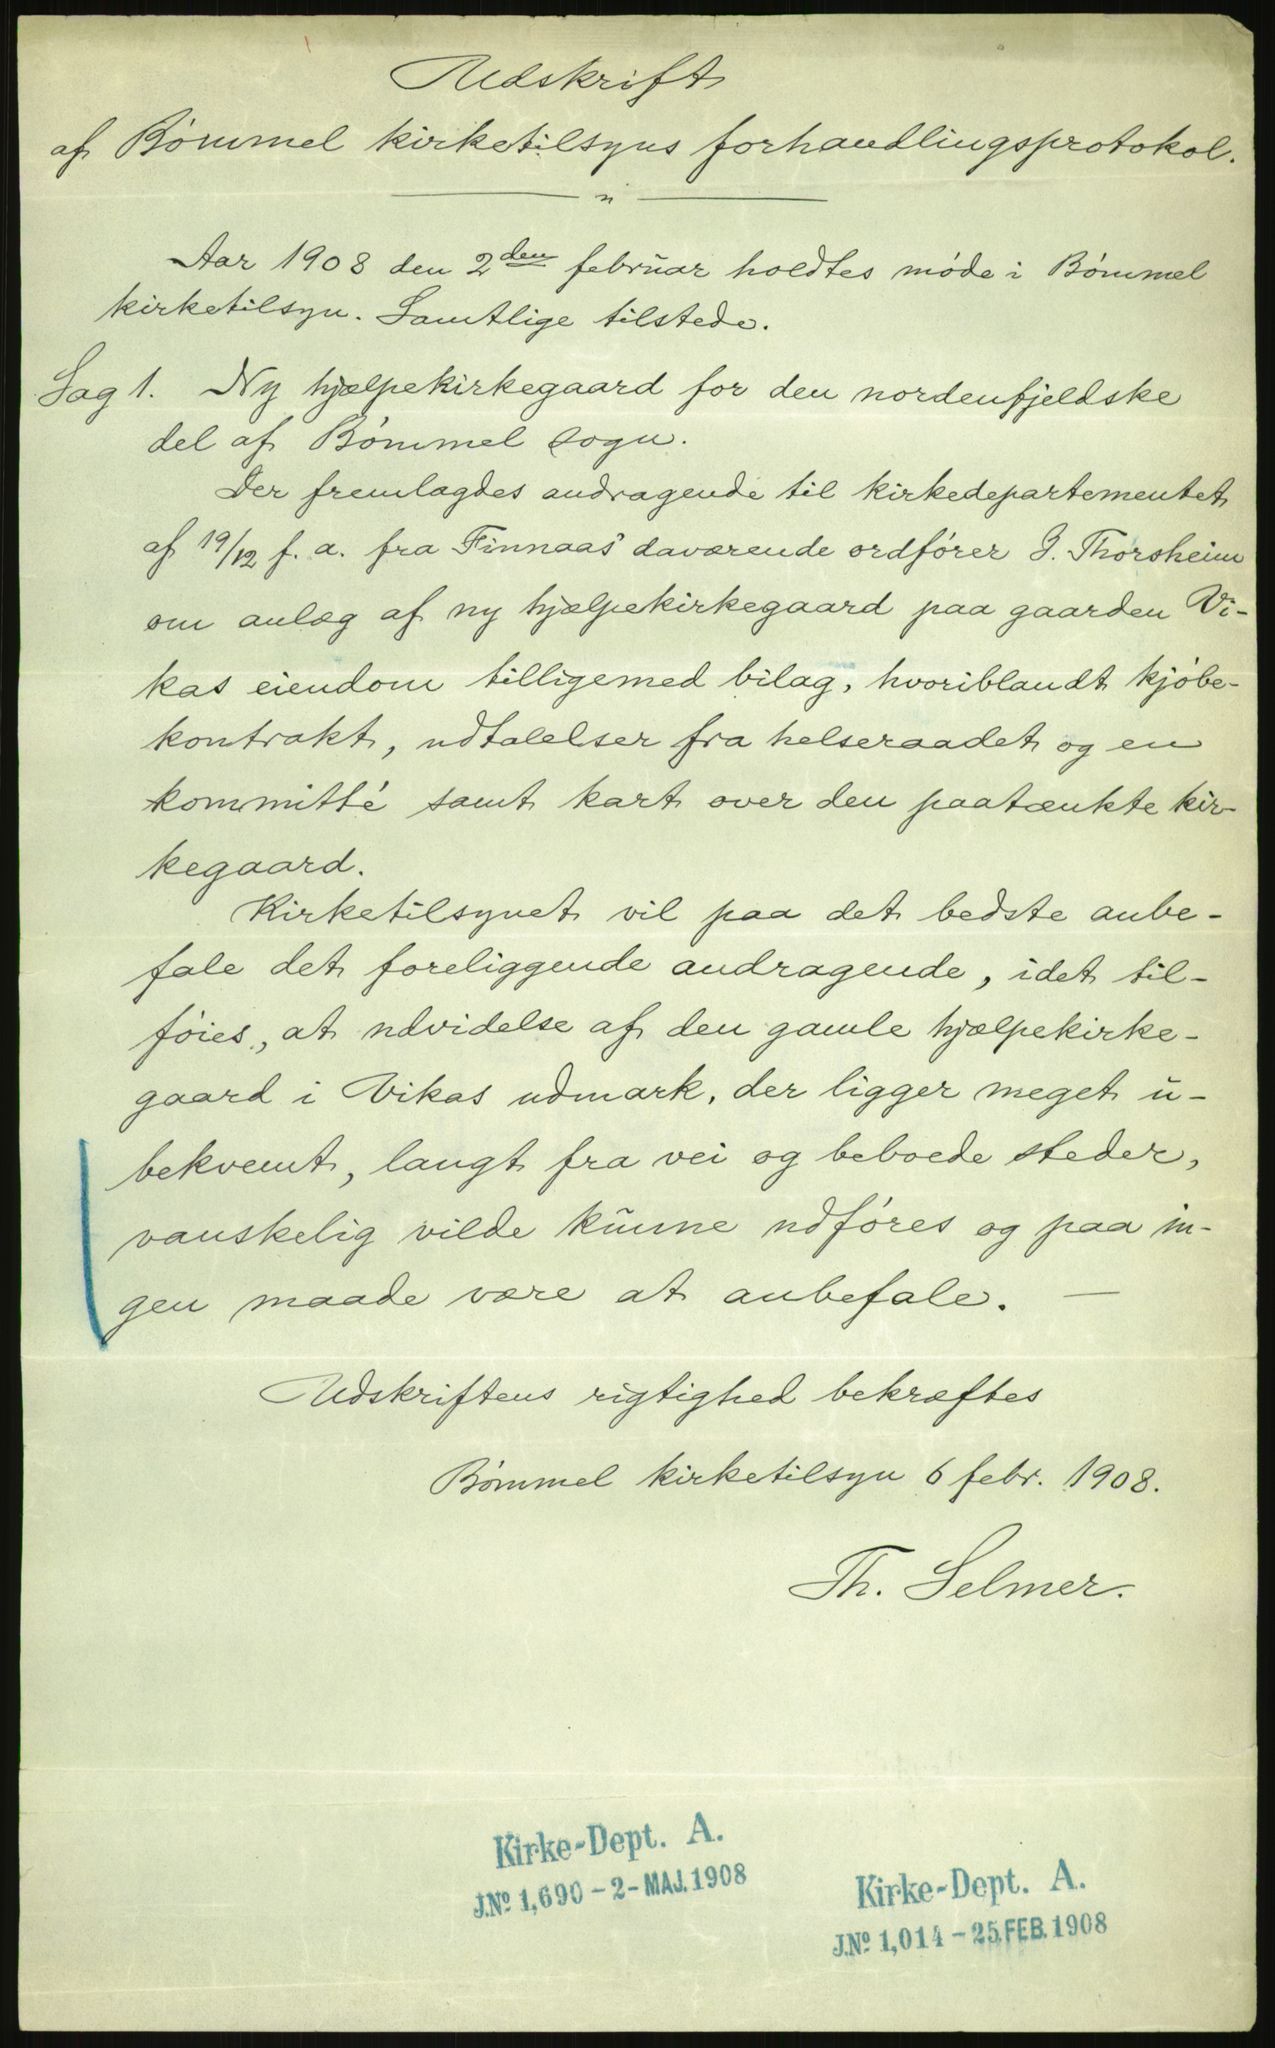 Udskrift
af Bømmel kirketilsyns forhandlingsprotokol.
Aar 1908 den 2den februar holdtes møde i Bømmel
kirketilsyn. Samtlige tilstede.
Sag 1. Ny hjælpekirkegaard for den nordenfjeldske
del af Bømmel sogn.
Der fremlagdes andragende til kirkedepartementet
af 19/12 f. a. fra Finnaas' daværende ordfører J. Thorsheim
om anlæg af ny hjælpekirkegaard paa gaarden Vi-
kas eiendom tilligemed bilag, hvoriblandt kjøbe-
kontrakt, udtalelser fra helseraadet og en
kommitté samt kart over den paatænkte kir-
kegaard.
Kirketilsynet vil paa det bedste anbe-
fale det foreliggende andragende, idet til-
føies, at udvidelse af den gamle hjælpekirke-
gaard i Vikas udmark, der ligger meget u-
bekvemt, langt fra vei og beboede steder,
vanskelig vilde kunne udføres og paa in-
gen maade være at anbefale. —
Udskriftens rigtighed bekræftes
Bømmel kirketilsyn 6 febr. 1908.
Th. Selmer.
Kirke-Dept. A.
J.Nº 1,690 - 2 - MAJ. 1908
Kirke-Dept. A.
J.Nº 1,014 - 25.FEB.1908